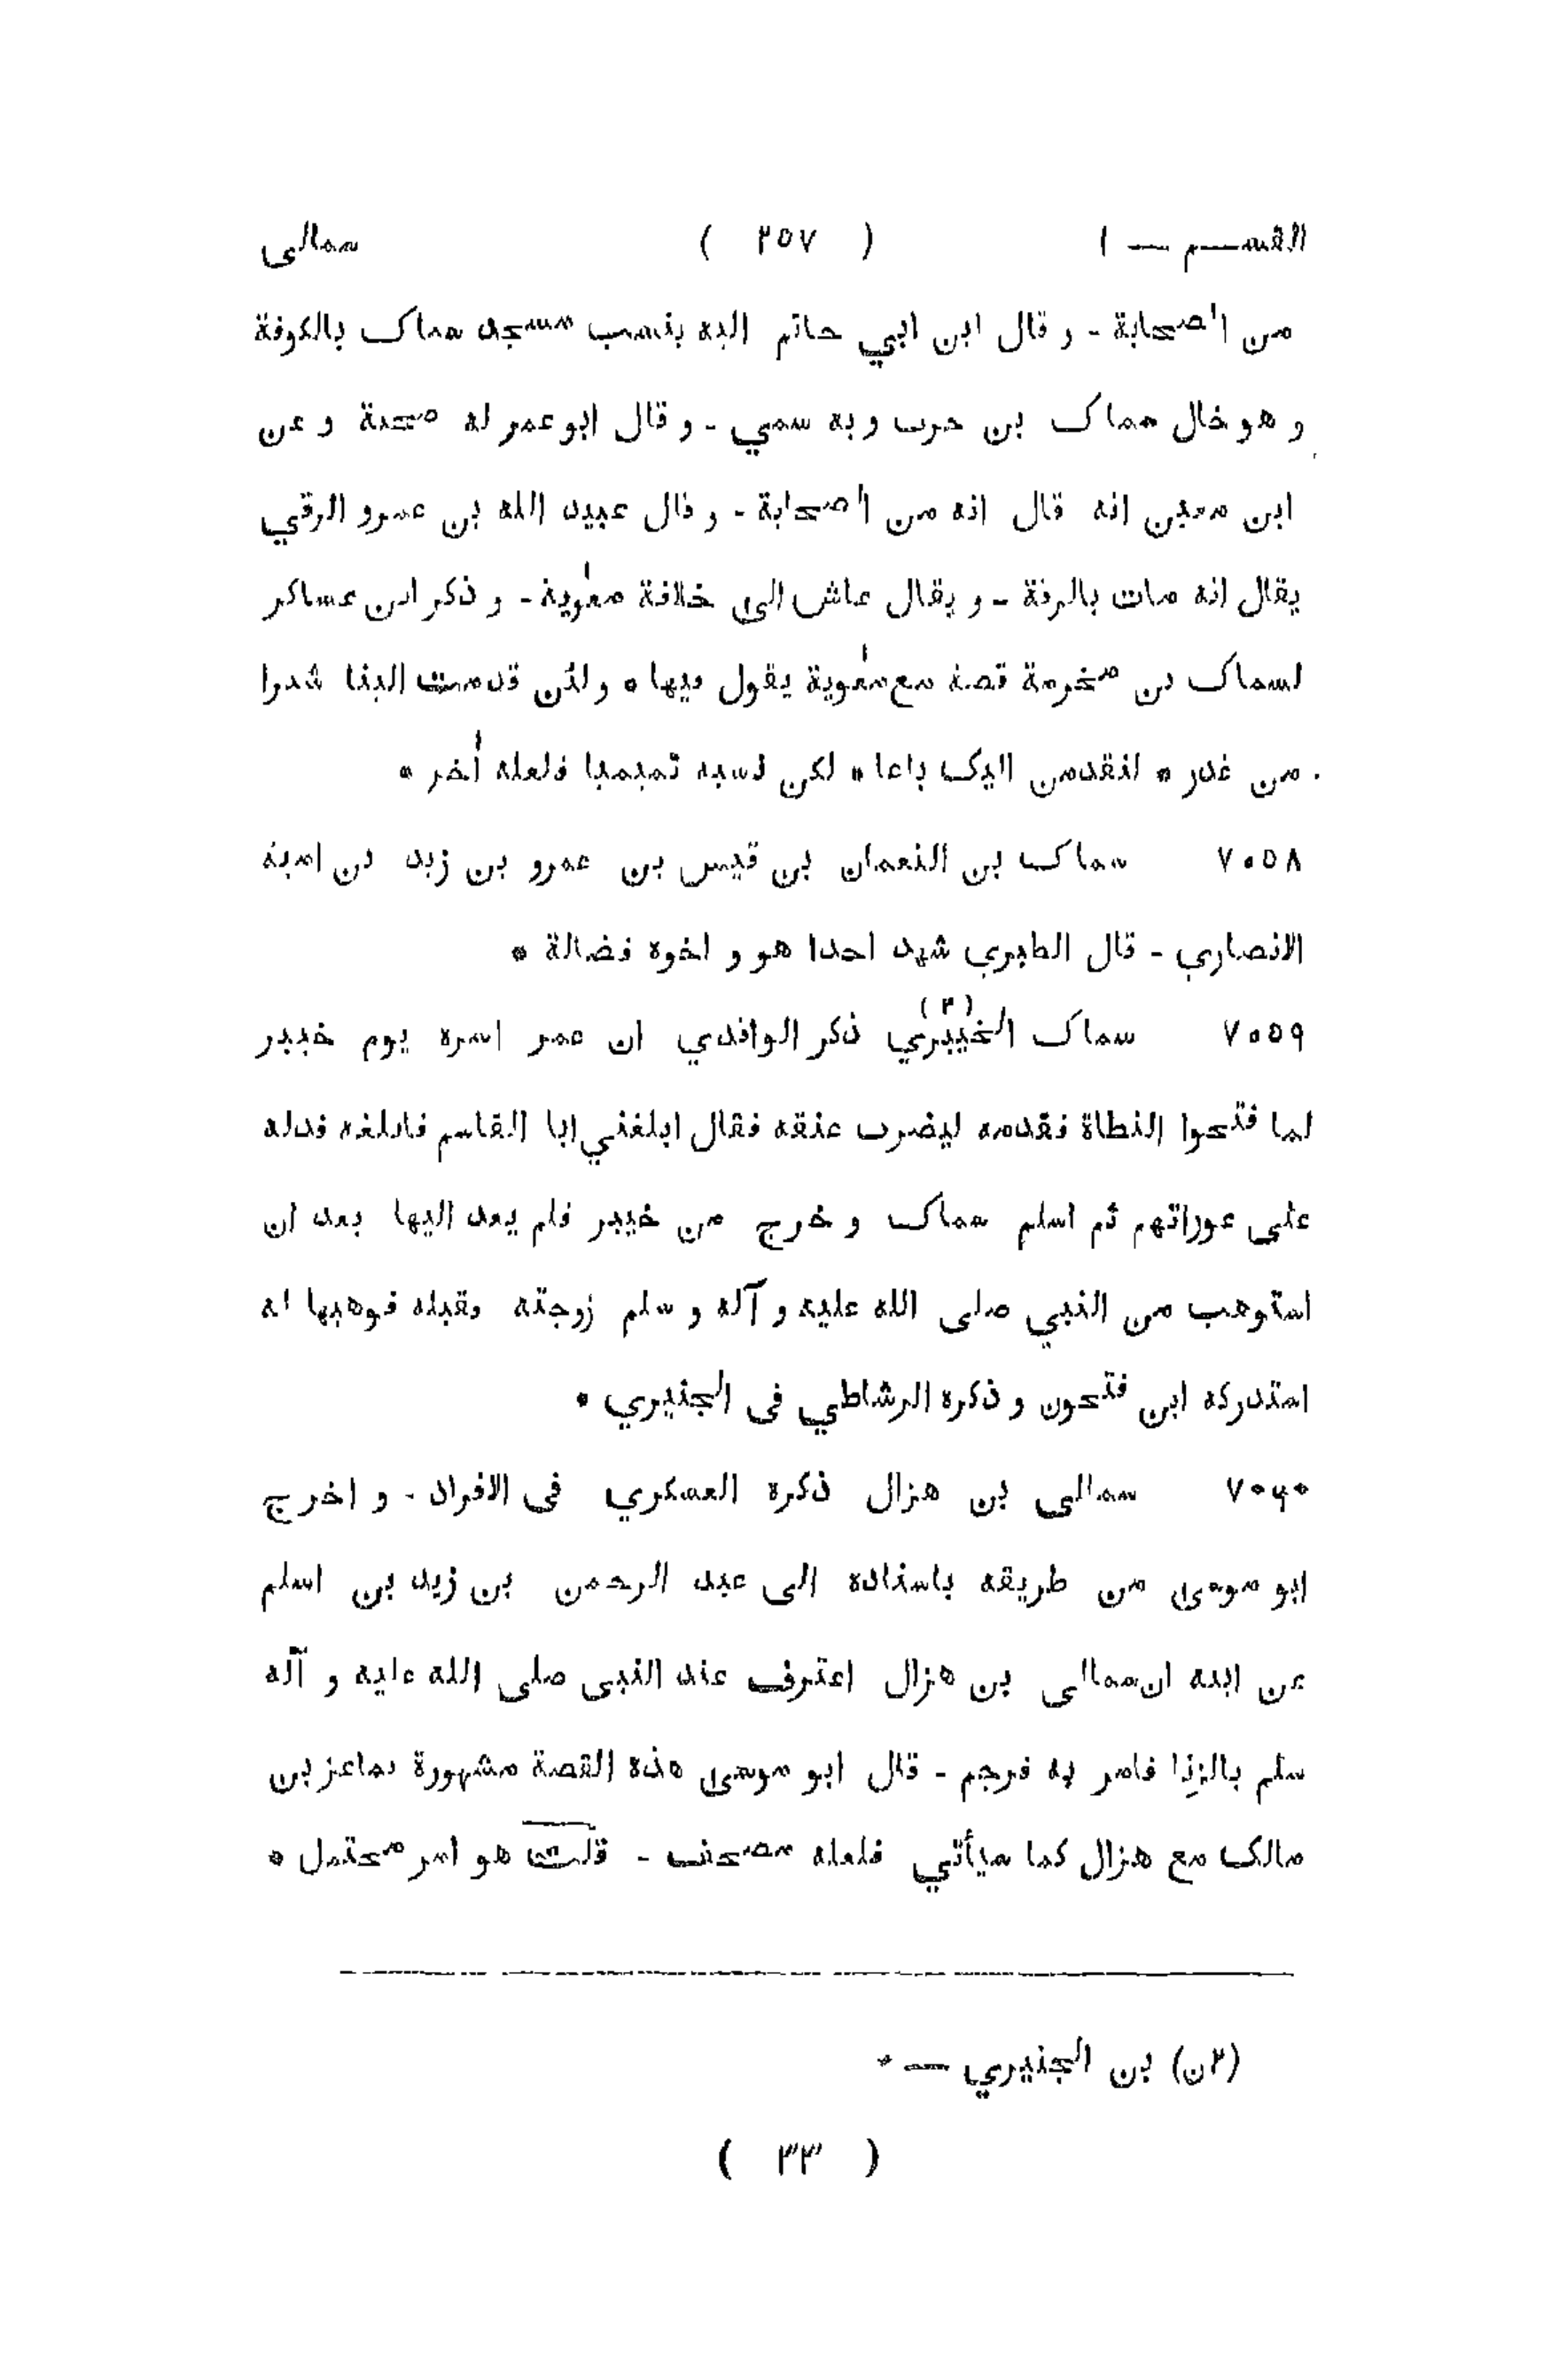 القسم — ١ ( ٢٥٧ ) سمالى
من الصحابة - و قال ابن ابي حاتم اليه ينسب مسجد سماك بالكوفة
و هو خال سماك بن حرب و به سمي - و قال ابو عمر له صحبة و عن
ابن معين انه قال انه من الصحابة - و قال عبيد الله بن عمرو الرقي
يقال انه مات بالرقة - و يقال عاش الى خلافة معٰوية - و ذكر ابن عساكر
لسماك بن مخرمة قصة مع معٰوية يقول فيها * ولئن قدمت الينا شبرا
من غدر * لنقدمن اليك باعا * لكن نسبه تميميا فلعله أخر *
٧٠٥٨ سماك بن النعمان بن قيس بن عمرو بن زيد بن امية
الانصاري - قال الطبري شهد احدا هو و اخوه فضالة *
٧٠٥٩ سماك الخيبري (٢) ذكر الواقدي ان عمر اسره يوم خيبر
لما فتحوا النطاة فقدمه ليضرب عنقه فقال ابلغني ابا القاسم فابلغه فدله
على عوراتهم ثم اسلم سماك و خرج من خيبر فلم يعد اليها بعد ان
استوهب من النبي صلى الله عليه و آله و سلم زوجته وقبله فوهبها له
استدركه ابن فتحون و ذكره الرشاطي فى الجنيري *
٧٠٦٠ سمالى بن هزال ذكره العسكري فى الافراد - و اخرج
ابو موسى من طريقه باسناده الى عبد الرحمن بن زيد بن اسلم
عن ابيه ان سمالى بن هزال اعترف عند النبى صلى الله عليه و آله
سلم بالزنا فامر به فرجم - قال ابو موسى هذه القصة مشهورة لماعز بن
مالك مع هزال كما سيأتي فلعله مصحف - قلت هو امر محتمل *
(٢ن) بن الجنيري — *
( ٣٣ )